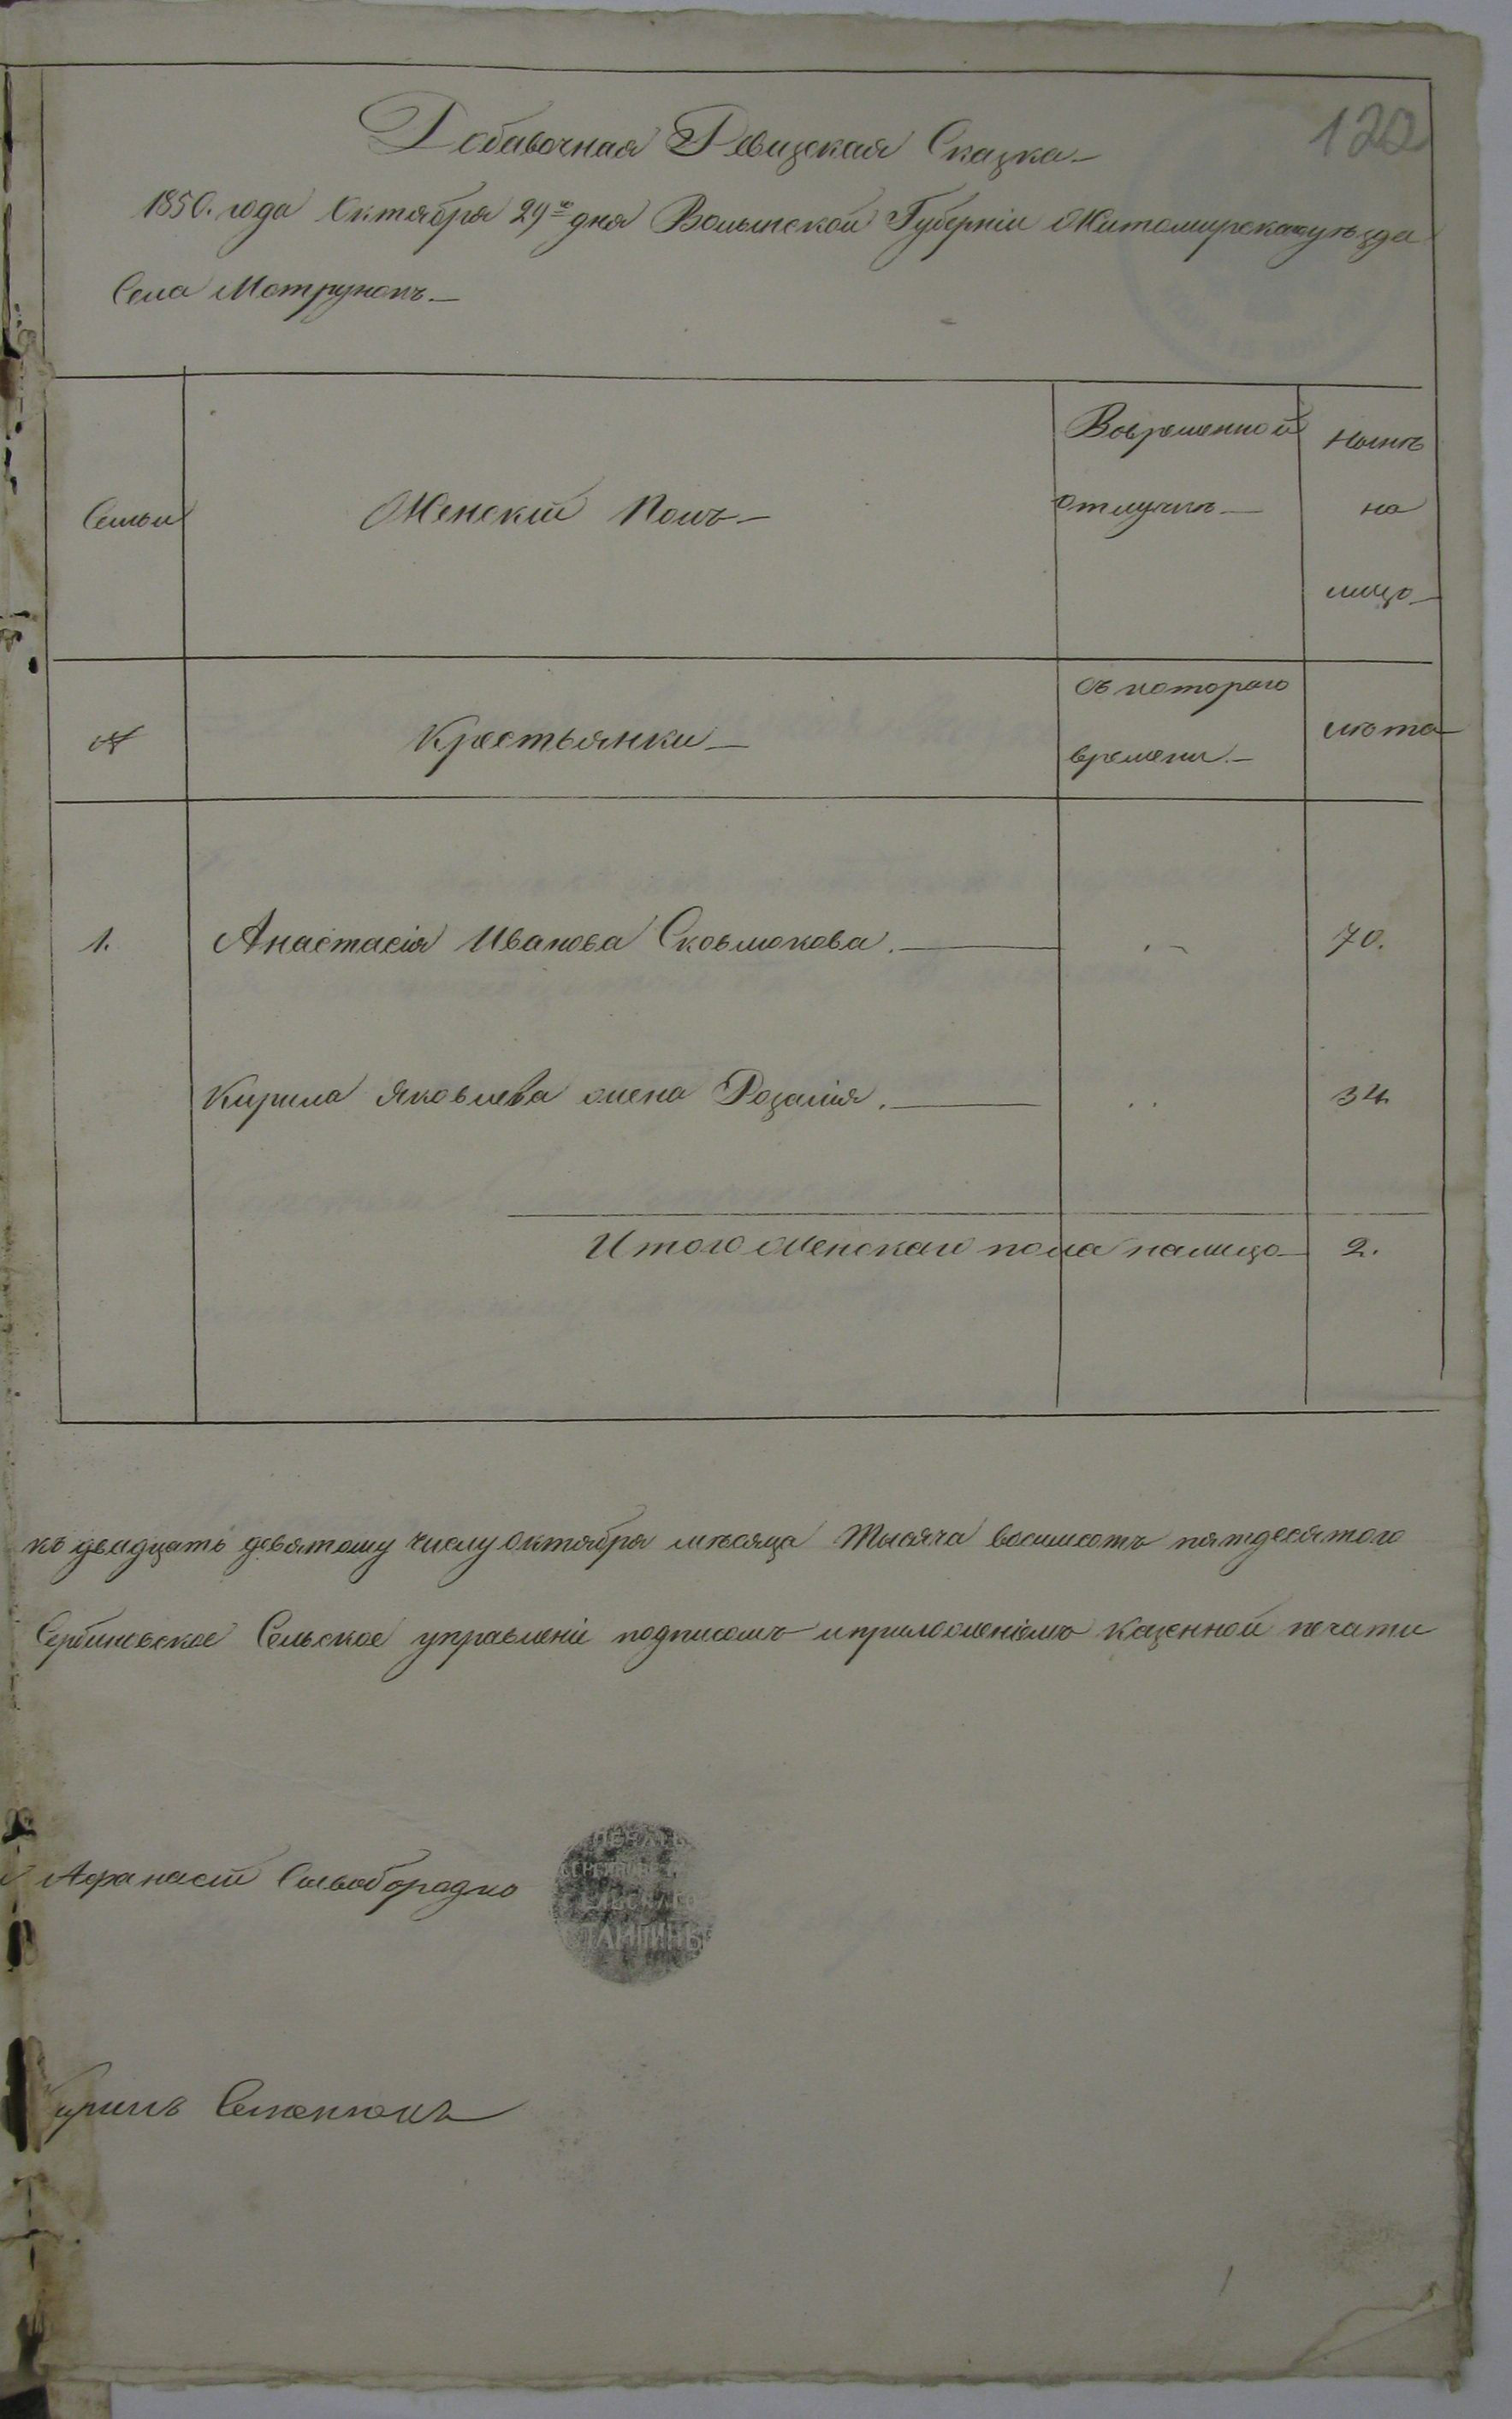 122
Добавочная Ревизская Сказка
1850. года Октября 29го дня Волынской Губерніи Житомирскаго уѣзда
Села Мотрунокъ.
Семьи
Женскій Полъ
Вовременной
отлучкѣ
Нынѣ
на
лицо
№
Крестьянки
Съ котораго
времени.
лѣта
1. Анастасія Иванова Сковлюкова. 70.
Кирила Яковлева жена Розалія. 34
Итого женскаго пола налицо 2.
къ двадцать девятому числу Октября мѣсяца Тысяча восмисотъ пятдесятого
Сербиновское Сельское управленіе подписомъ иприложеніемъ казенной печати
Афанасій Сивобородко
ПЕЧАТЬ
Семенюкъ